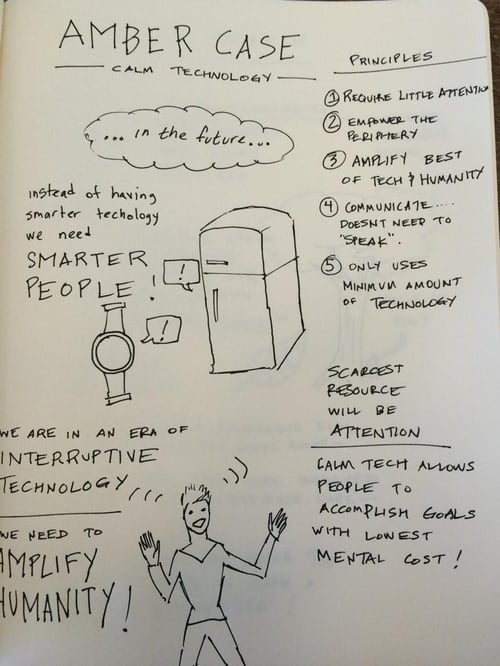 AMBER CASE
CALM TECHNOLOGY
... in the future...
instead of having
smarter techology
we need
SMARTER
PEOPLE!
!
!
WE ARE IN AN ERA OF
INTERRUPTIVE
TECHNOLOGY
WE NEED TO
AMPLIFY
HUMANITY!
PRINCIPLES
1 REQUIRE LITTLE ATTENTION
2 EMPOWER THE
PERIPHERY
3 AMPLIFY BEST
OF TECH & HUMANITY
4 COMMUNICATE....
DOESNT NEED TO
"SPEAK".
5 ONLY USES
MINIMUM AMOUNT
OF TECHNOLOGY
SCARCEST
RESOURCE
WILL BE
ATTENTION
CALM TECH ALLOWS
PEOPLE TO
ACCOMPLISH GOALS
WITH LOWEST
MENTAL COST!